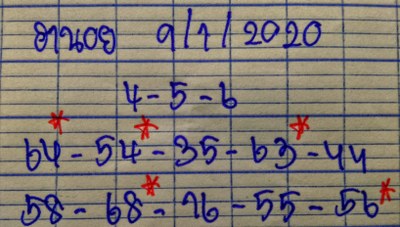 ฮานอย 9/1/2020
4-5-6
64-54-35-63-44
58-68-76-55-56